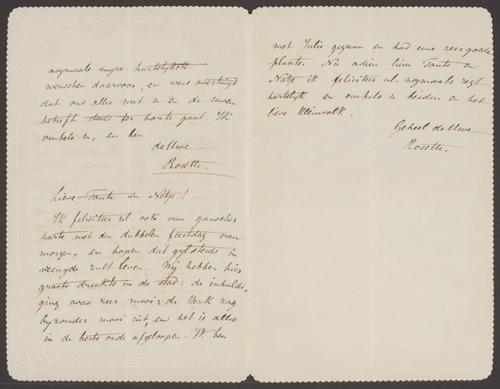 nogmaals mijne hartelijkste
wenschen daarvoor, en wees overtuigd
dat ons alles wat u en de uwen
betreft zeer ter harte gaat. Ik
omhels u, en ben
de Uwe
Rosette.
Lieve Tante en Netje!
Ik feliciteer ul. ook van ganscher
harte met den dubbelen feestdag van
morgen, en hopen dat gij steeds in
vreugde zult leven. Wij hebben hier
groote drukte in de stad: de inhuldi-
ging was zeer mooi: de Kerk zag
bijzonder mooi uit, en het is alles
in de beste orde afgeloopen. Ik ben
met Julie gegaan en had eene zeer goede
plaats. Nu adieu lieve Tante en
Netje ik feliciteer ul. nogmaals regt
hartelijk en omhels u beiden en het
lieve kleinvolk.
Geheel de Uwe
Rosette.